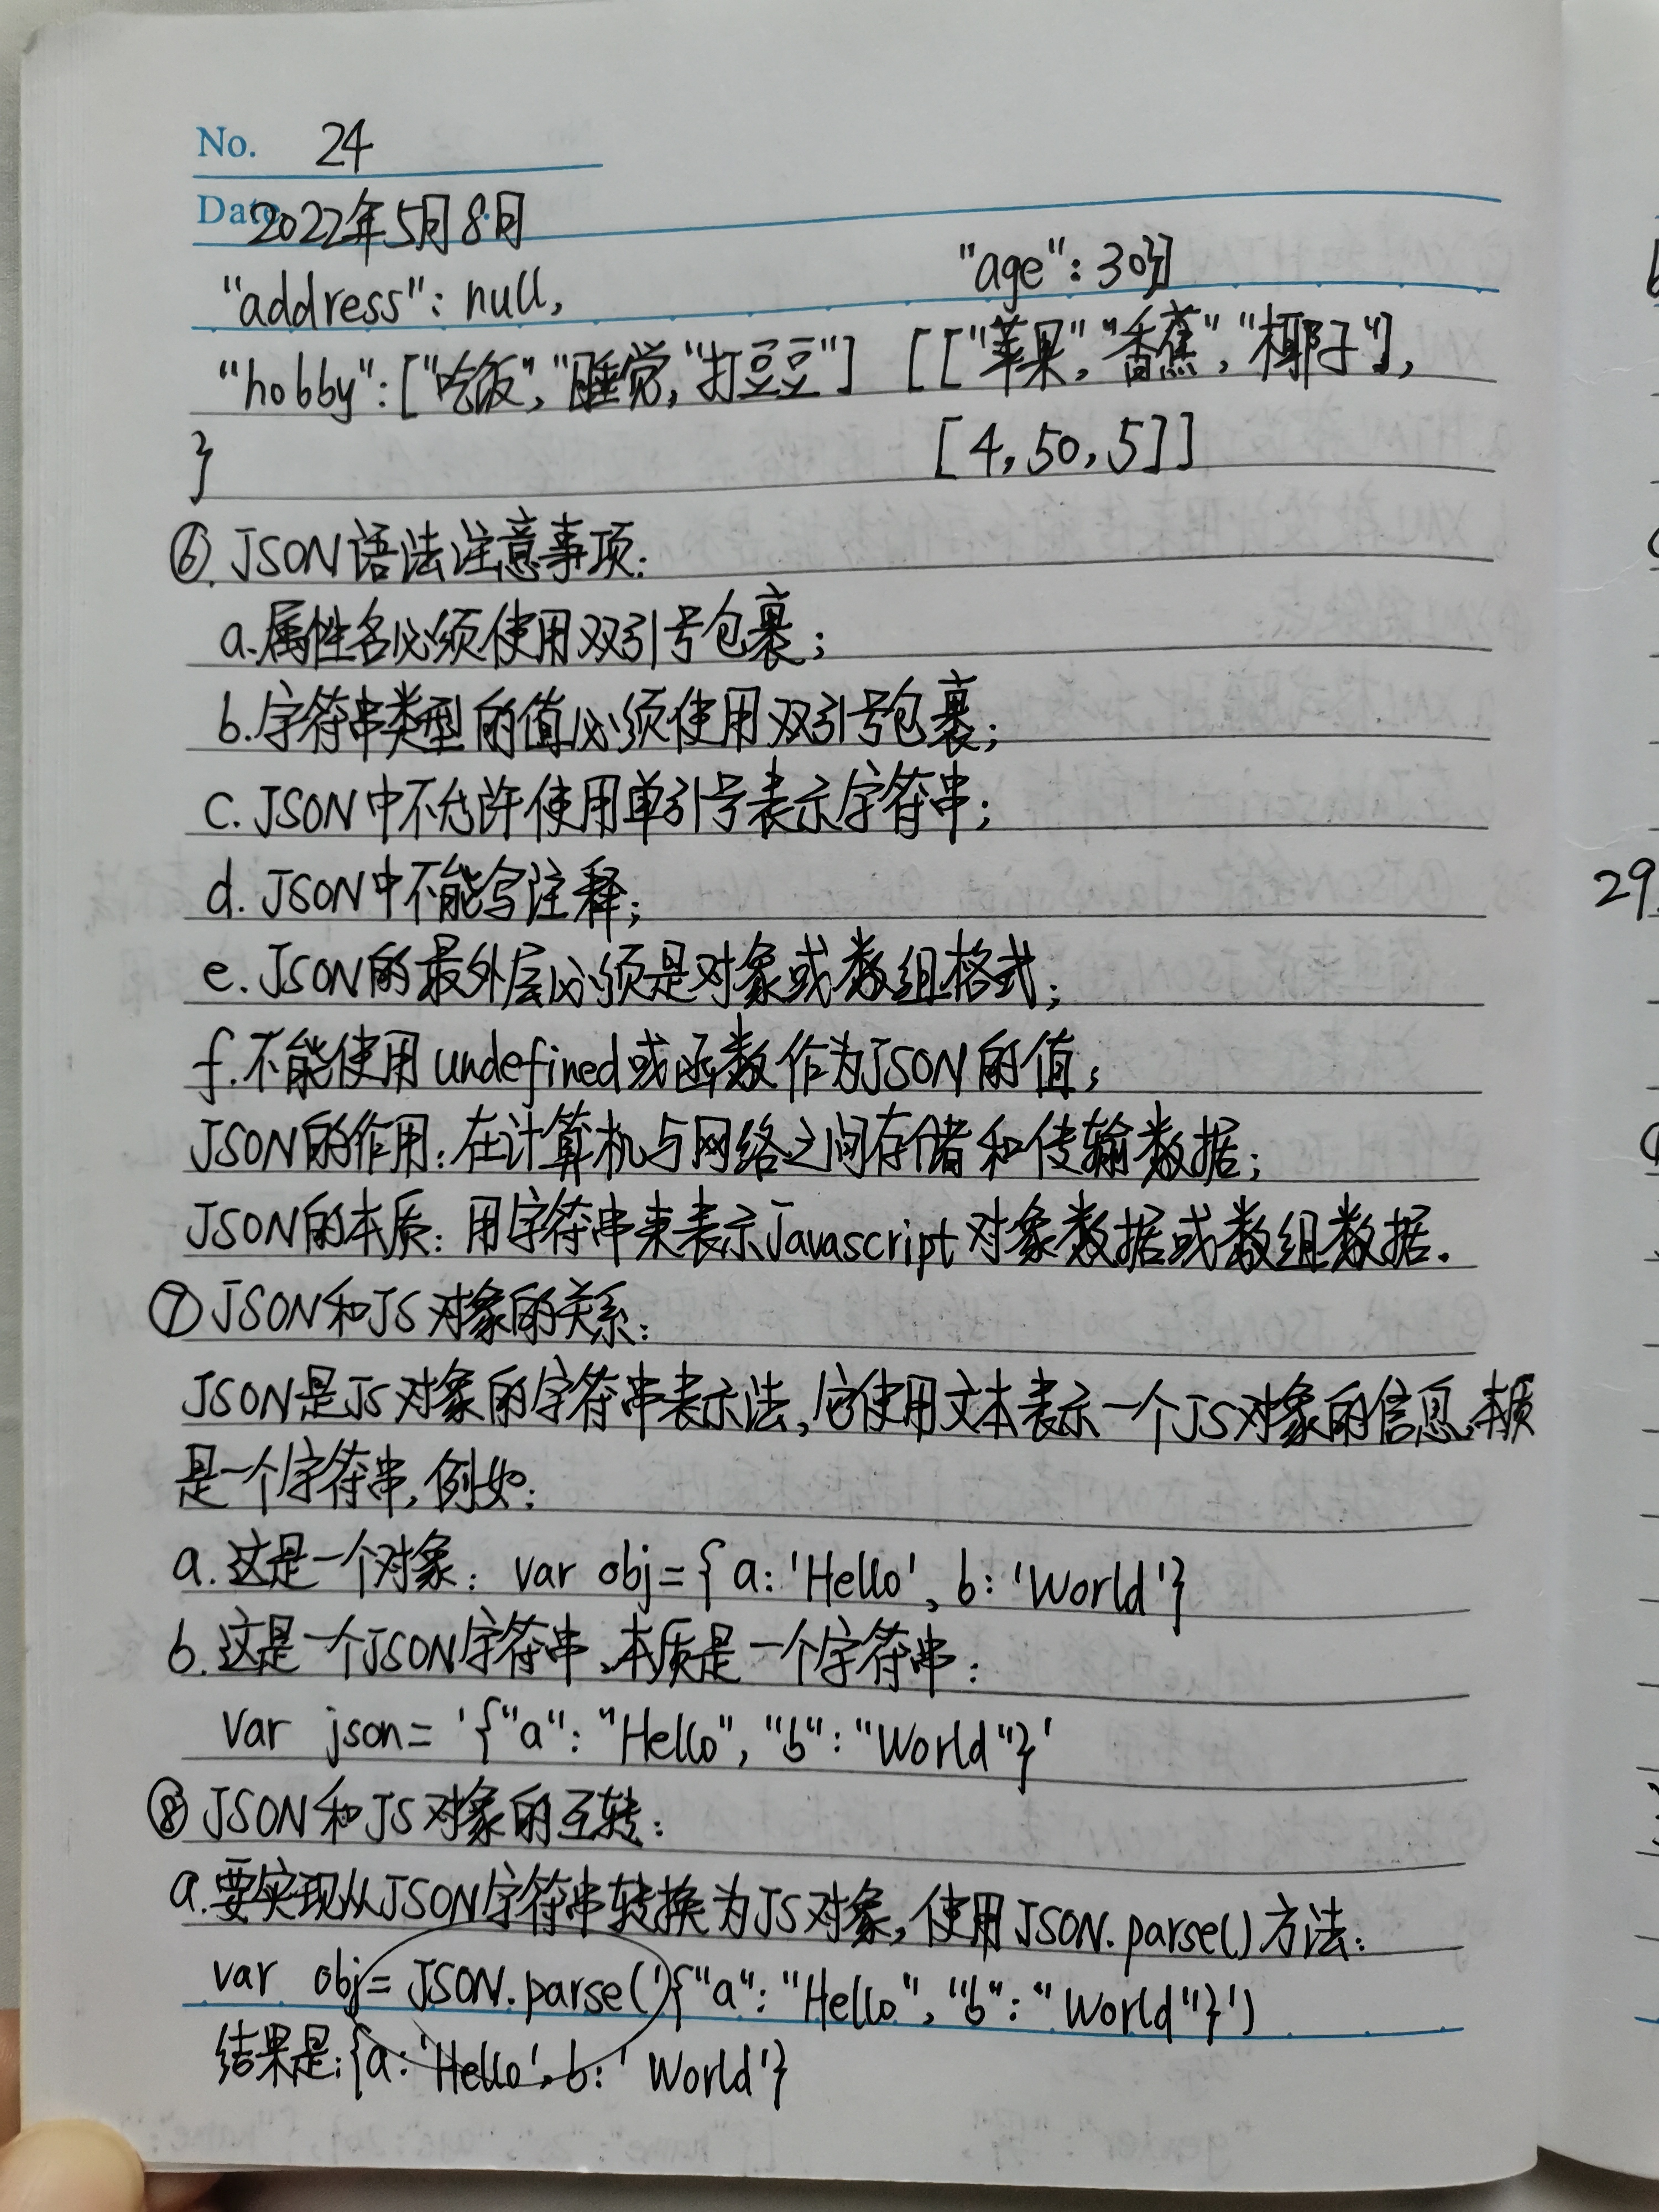 No. 24
Date 2022年5月8日
"address": null,
"age": 30}]
"hobby": ["吃饭", "睡觉, "打豆豆"]
[["苹果", "香蕉", "椰子"],
}
[4, 50, 5]]
⑥. JSON语法注意事项:
a.属性名必须使用双引号包裹;
b.字符串类型的值必须使用双引号包裹;
c. JSON中不允许使用单引号表示字符串;
d. JSON中不能写注释;
e. JSON的最外层必须是对象或数组格式;
f.不能使用undefined或函数作为JSON的值;
JSON的作用:在计算机与网络之间存储和传输数据;
JSON的本质:用字符串来表示Javascript对象数据或数组数据.
⑦JSON和JS对象的关系:
JSON是JS对象的字符串表示法,它使用文本表示一个JS对象的信息,本质
是一个字符串,例如:
a.这是一个对象: var obj={a:'Hello', b:'World'}
b.这是一个JSON字符串,本质是一个字符串:
var json= '{"a": "Hello", "b": "World"}'
⑧JSON和JS对象的互转:
a.要实现从JSON字符串转换为JS对象,使用JSON.parse()方法:
var obj= JSON.parse('{"a": "Hello", "b": "World"}')
结果是:{a:'Hello', b:'World'}
29.